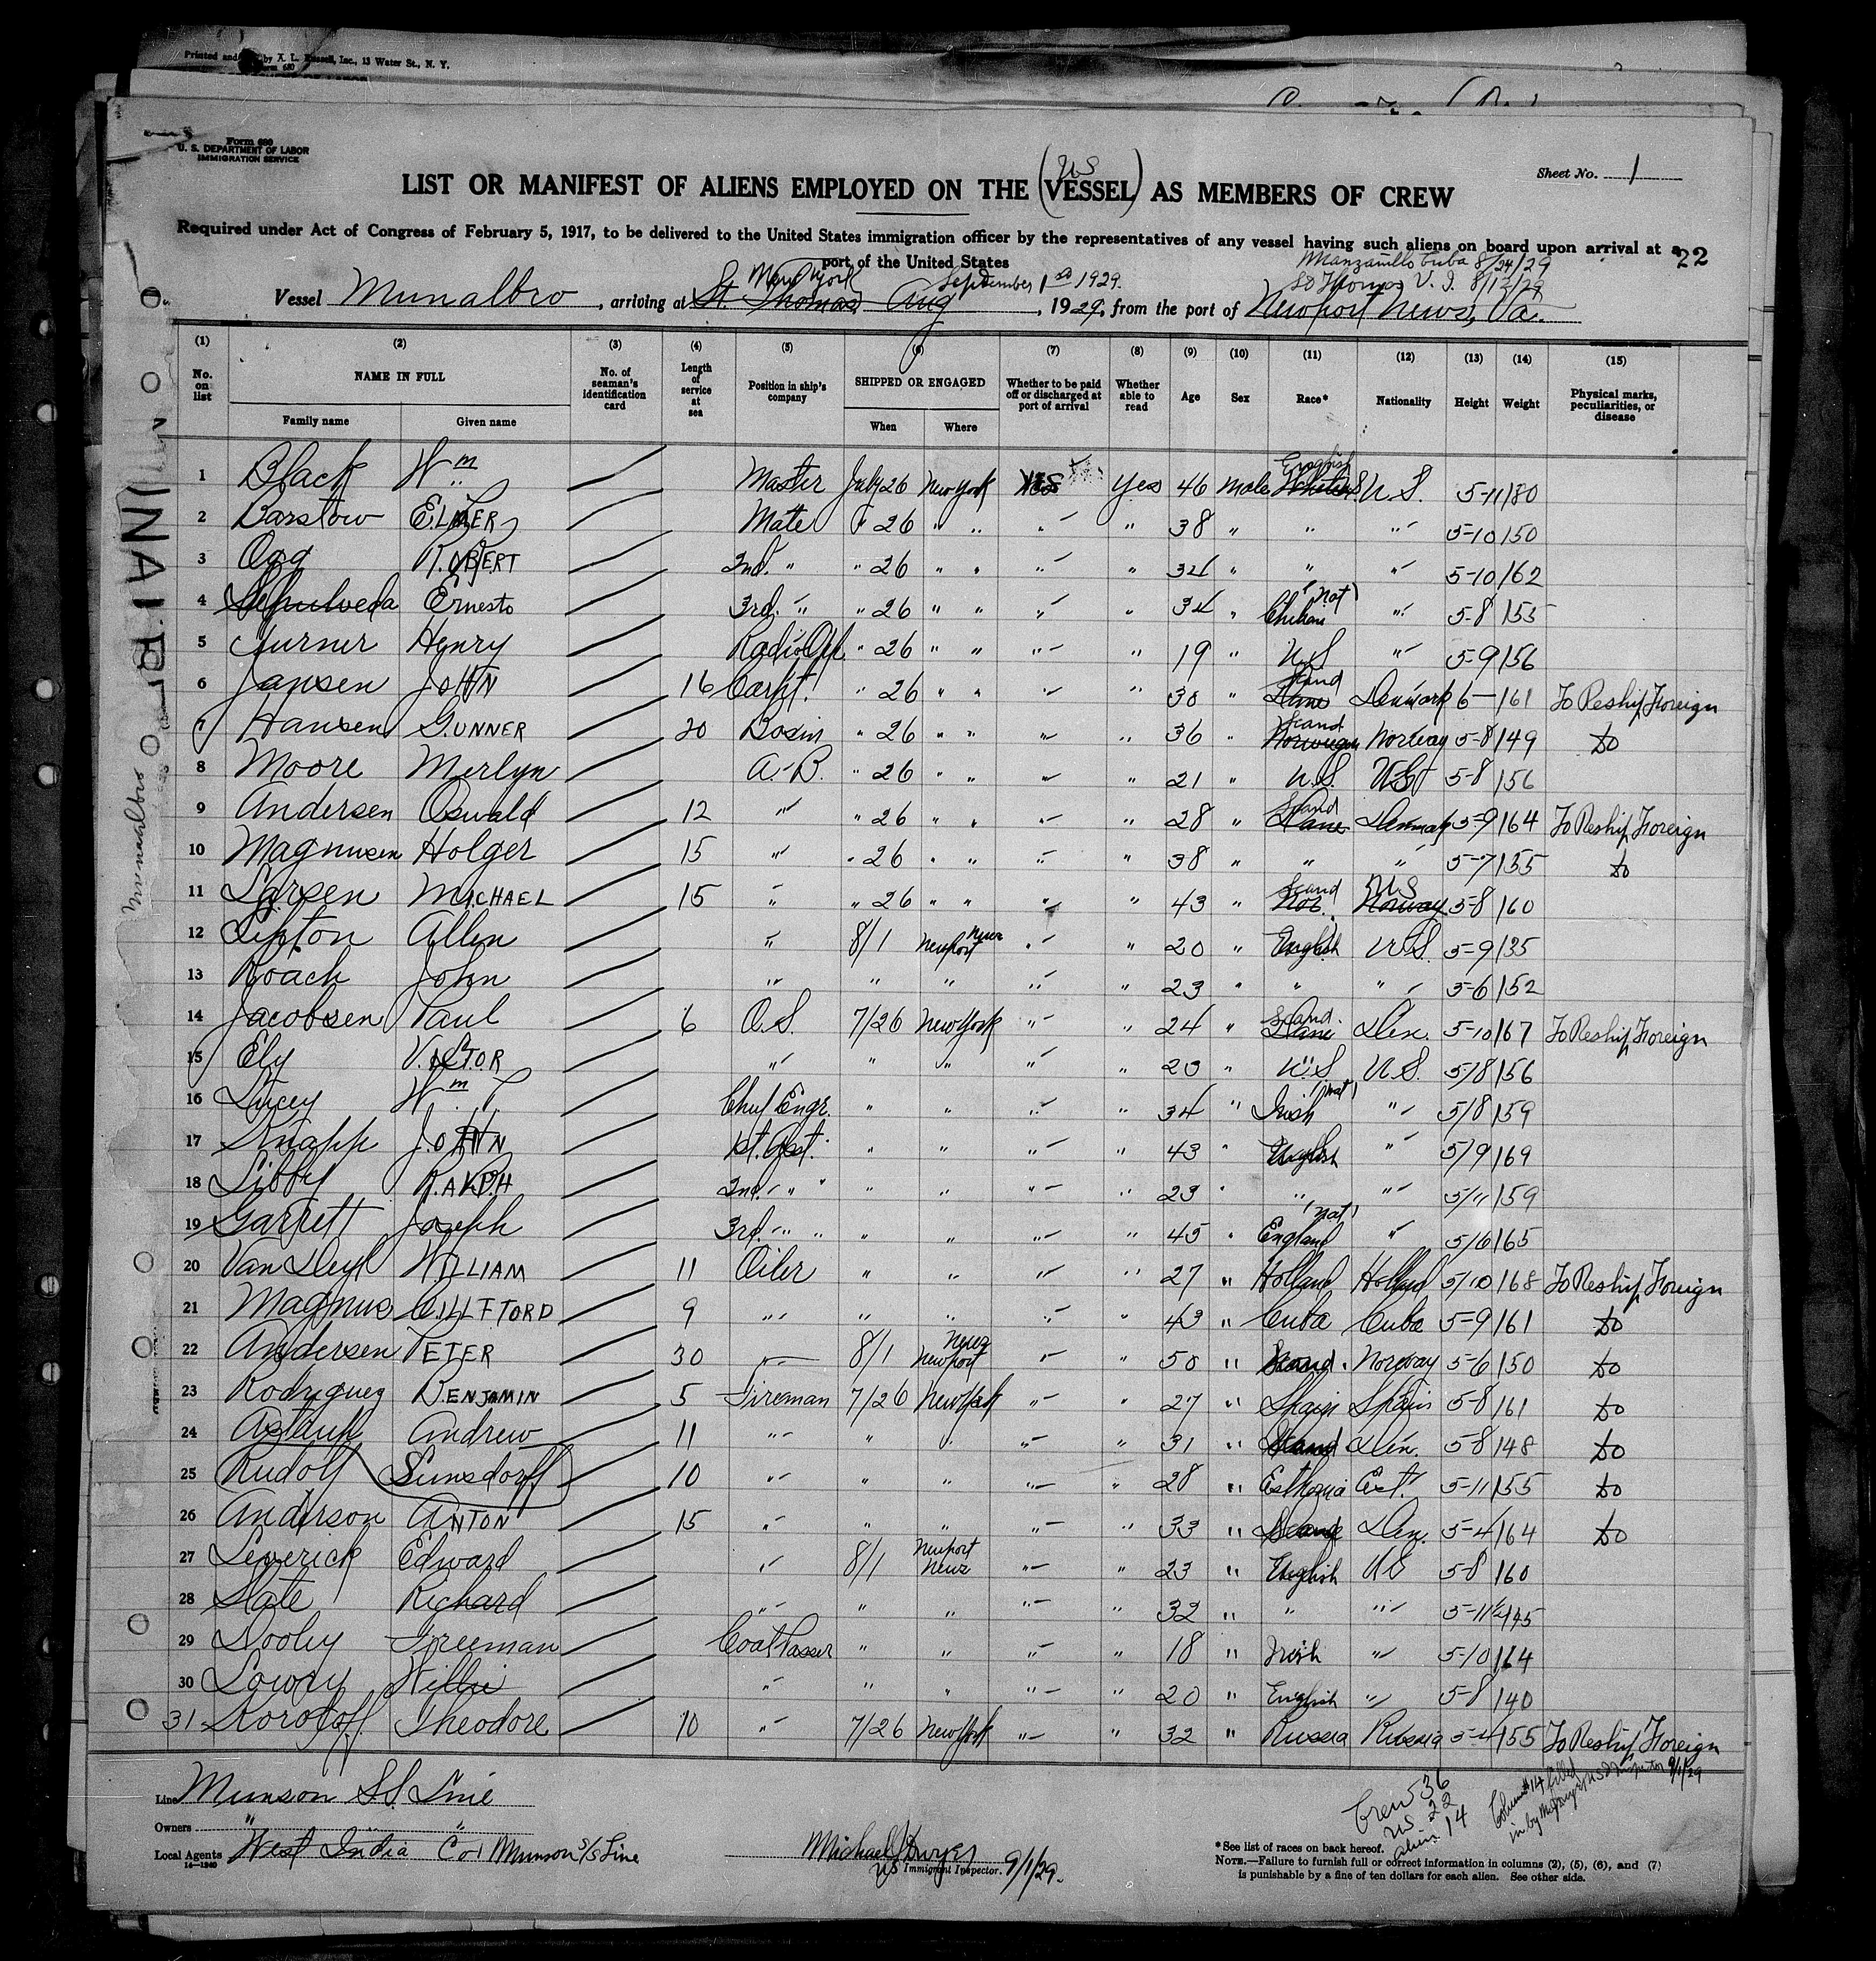 Printed and by A. L. Russell, Inc., 13 Water St., N. Y.
Form 680
U. S. DEPARTMENT OF LABOR
IMMIGRATION SERVICE
Sheet No. 1
US
LIST OR MANIFEST OF ALIENS EMPLOYED ON THE (VESSEL) AS MEMBERS OF CREW
Required under Act of Congress of February 5, 1917, to be delivered to the United States immigration officer by the representatives of any vessel having such aliens on board upon arrival at a
port of the United States
22
Manzanillo Cuba 8/24/29
New York September 1st 1929.
St Thomas V. I. 8/12/29
Vessel Munalbro, arriving at St. Thomas Aug, 1929, from the port of Newport News, Va.
(1) (2) (3) (4) (5) (6) (7) (8) (9) (10) (11) (12) (13) (14) (15)
No. on list NAME IN FULL No. of seaman's identification card Length of service at sea Position in ship's company SHIPPED OR ENGAGED Whether to be paid off or discharged at port of arrival Whether able to read Age Sex Race* Nationality Height Weight Physical marks, peculiarities, or disease
Family name Given name When Where
1 Black Wm Master July 26 New York Yes yes 46 male English U.S. 5-11 180
2 Barstow ELMER Mate " 26 " " " " 38 " " " 5-10 150
3 Ogg ROBERT 2nd. " " 26 " " " " 34 " " " 5-10 162
4 Sepulveda Ernesto 3rd. " " 26 " " " " 34 " Chilian (nat) " 5-8 155
5 Turner Henry Radio Opr. " 26 " " " " 19 " U.S " 5-9 156
6 Jansen JOHN 16 Carpt. " 26 " " " " 30 " Dane Scand Denmark 6- 161 To Reship Foreign
7 Hansen GUNNER 20 Bosin " 26 " " " " 36 " Norwegian Scand Norway 5-8 149 do
8 Moore Merlyn A.B. " 26 " " " " 21 " U.S. US 5-8 156
9 Andersen Oswald 12 " " 26 " " " " 28 " Dane Scand Denmark 5-9 164 To Reship Foreign
10 Magnusen Holger 15 " " 26 " " " " 38 " " " 5-7 155 do
11 Larsen MICHAEL 15 " " 26 " " " " 43 " Nor. Scand Norway US 5-8 160
12 Lipton Allen " 8/1 Newport News " " 20 " English U.S. 5-9 135
13 Roach John " " " " " 23 " " " 5-6 152
14 Jacobsen Paul 6 O.S. 7/26 New York " " 24 " Dane Scand. Den. 5-10 167 To Reship Foreign
15 Ely VICTOR " " " " " 20 " U.S U.S. 5/8 156
16 Lucey Wm. Chief Engr. " " " " 34 " Irish (nat) " 5/8 159
17 Knapp JOHN 1st. Asst. " " " " 43 " English " 5/9 169
18 Libby RALPH 2nd. " " " " " " 23 " " " 5/11 159
19 Garrett Joseph 3rd. " " " " " " 45 " England (nat) " 5/6 165
20 Van Deyl WILLIAM 11 Oiler " " " " 27 " Holland Holland 5/10 168 To Reship Foreign
21 Magnus CLIFFTORD 9 " " " " " 43 " Cuba Cuba 5-9 161 do
22 Andersen PETER 30 " 8/1 Newport News " " 50 " Scand. Norway 5-6 150 do
23 Rodriguez BENJAMIN 5 Fireman 7/26 New York " " 27 " Spain Spain 5-8 161 do
24 Andrew 11 " " " " " 31 " Scand Den. 5-8 148 do
25 Rudolf Sunsdorff 10 " " " " " 28 " Esthonia Est. 5-11 155 do
26 Anderson ANTON 15 " " " " " 33 " Scand Den. 5-4 164 do
27 Leverick Edward " 8/1 Newport News " " 23 " English US 5-8 160
28 Slate Richard " " " " " 32 " " " 5-11½ 145
29 Dooley Freeman Coal Passer " " " " 18 " Irish " 5-10 164
30 Lowry Willie " " " " " 20 " English " 5-8 140
31 Korotoff Theodore 10 " 7/26 New York " " 32 " Russia Russia 5-4 155 To Reship Foreign
Line Munson S.S. Line
Owners " "
Local Agents West India Co. Munson S/S Line
14—1240
Michael J Dwyer
US Immigrant Inspector. 9/1/29.
Crew 36
US 22
Aliens 14
Column #14 filled
in by US Inspector 9/1/29
* See list of races on back hereof.
NOTE.—Failure to furnish full or correct information in columns (2), (5), (6), and (7)
is punishable by a fine of ten dollars for each alien. See other side.